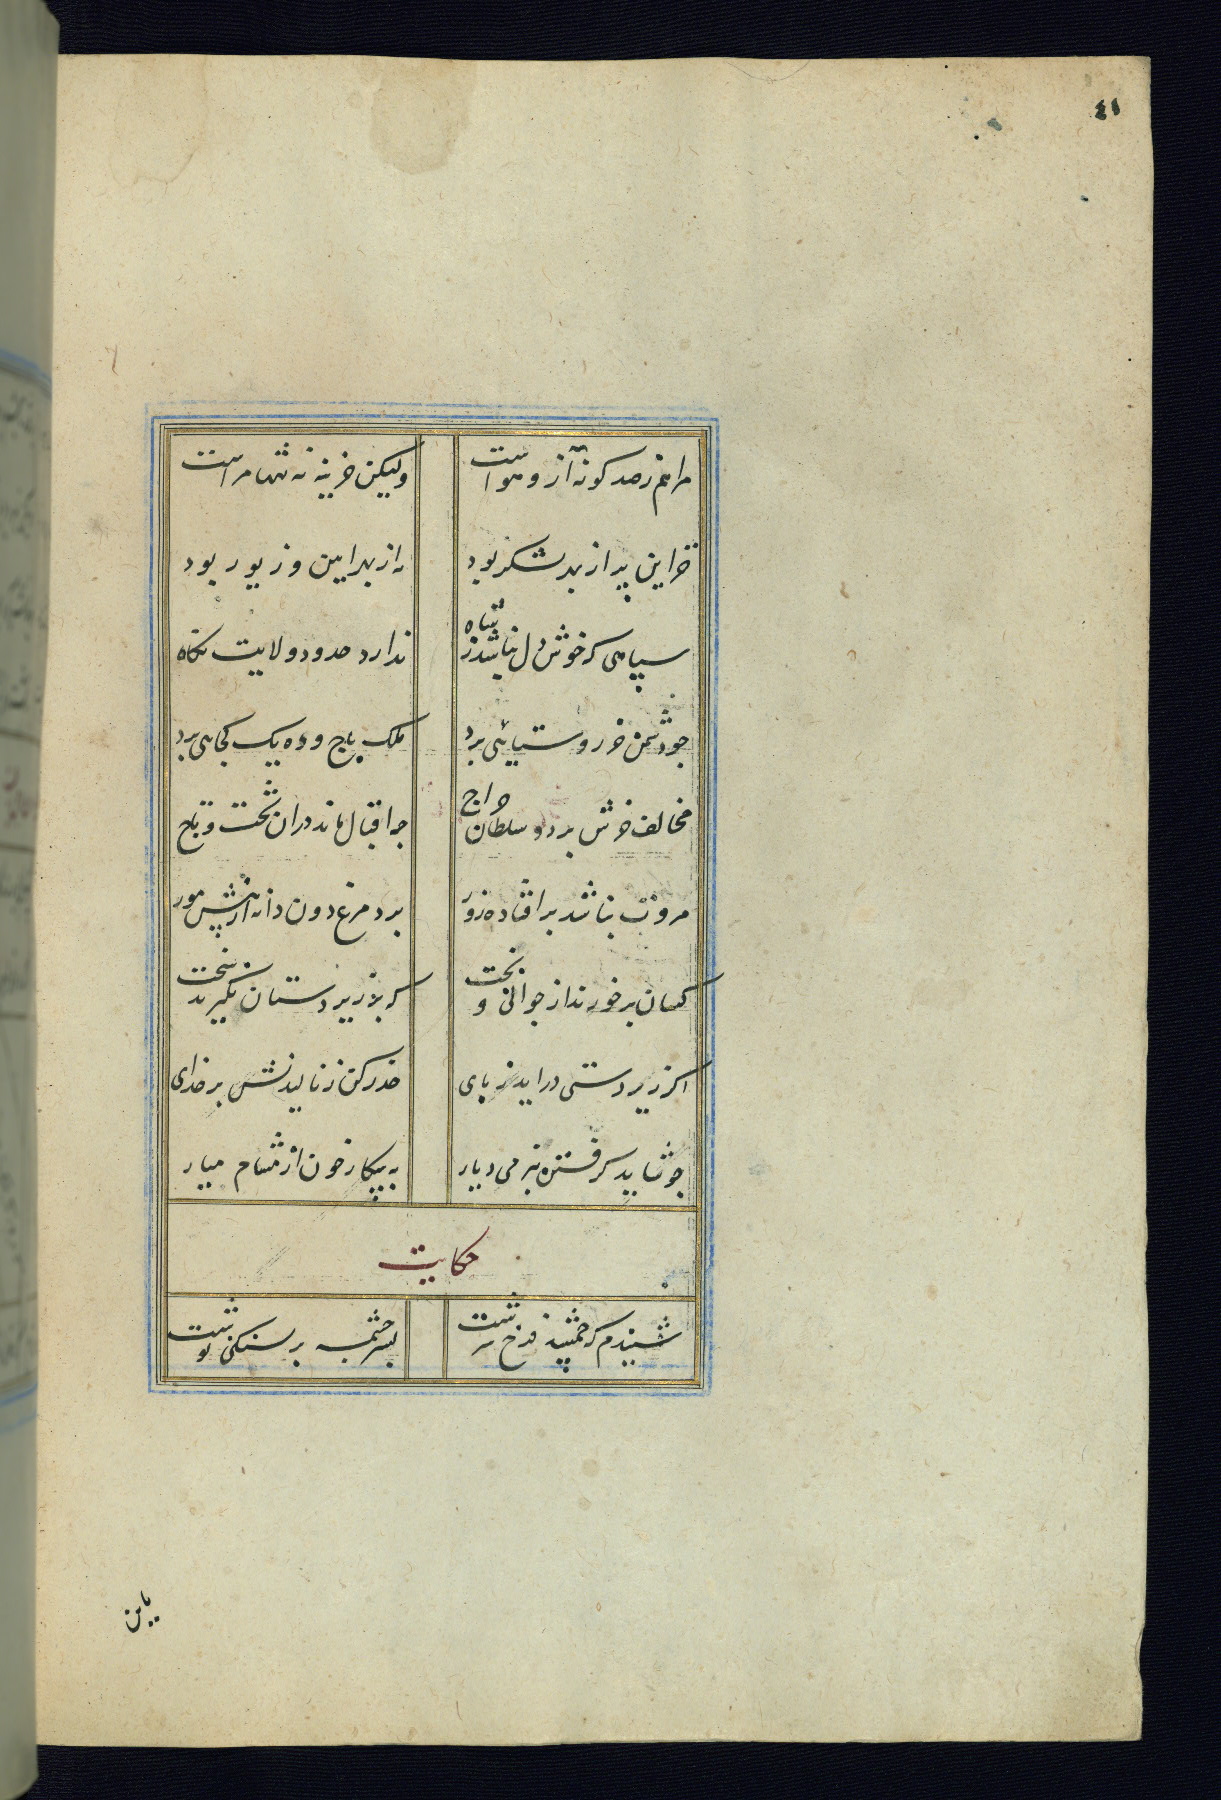 ٤١
مرا هم ز صد کونه آز و هواست ولیکن خزینه نه تنها مراست
خزاین پر از بهر لشکر بود نه از بهر ایین و زیور بود
سپاهی که خوش دل نباشد ز شاه ندارد حدود ولایت نکاه
جو دشمن خر روستایئی برد ملک باج و ده یک کجا می برد
مخالف خرش برد و سلطان خراج جه اقبال ماند دران تخت و تاج
مروت نباشد بر افتاده زور برد مرغ دون دانه از پیش مور
کسان بر خورند از جوانی و بخت که بر زیر دستان نکیرند سخت
اکر زیر دستی دراید ز پای حذر کن ز نالیدنش بر خدای
جو شاید کرفتن بنرمی دیار به پیکار خون از مشام میار
حکایت
شنیدم که جمشید فرخ سرشت بسر چشمه بر سنکی نوشت
باین